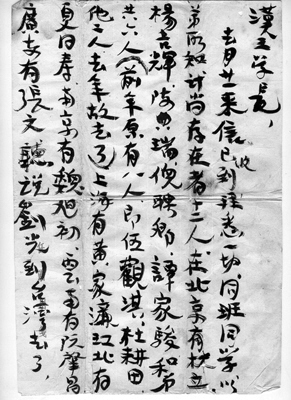 漢五学長，
青月廿来信已到，詳悉一切，同班同学以
弟所知，計尚存在者十二人，在北京有林立、
楊吉輝、陈典瑞、倪聘卿、譚家駿和弟
共六人（前年原有八人，即伍觀淇、杜耕田
他二人去年故去了）上海有黄家濂，江北有
夏日春，南京有魏旭初，雲南有阮肇昌
廣安有張文，聽說劉光到台灣去了，